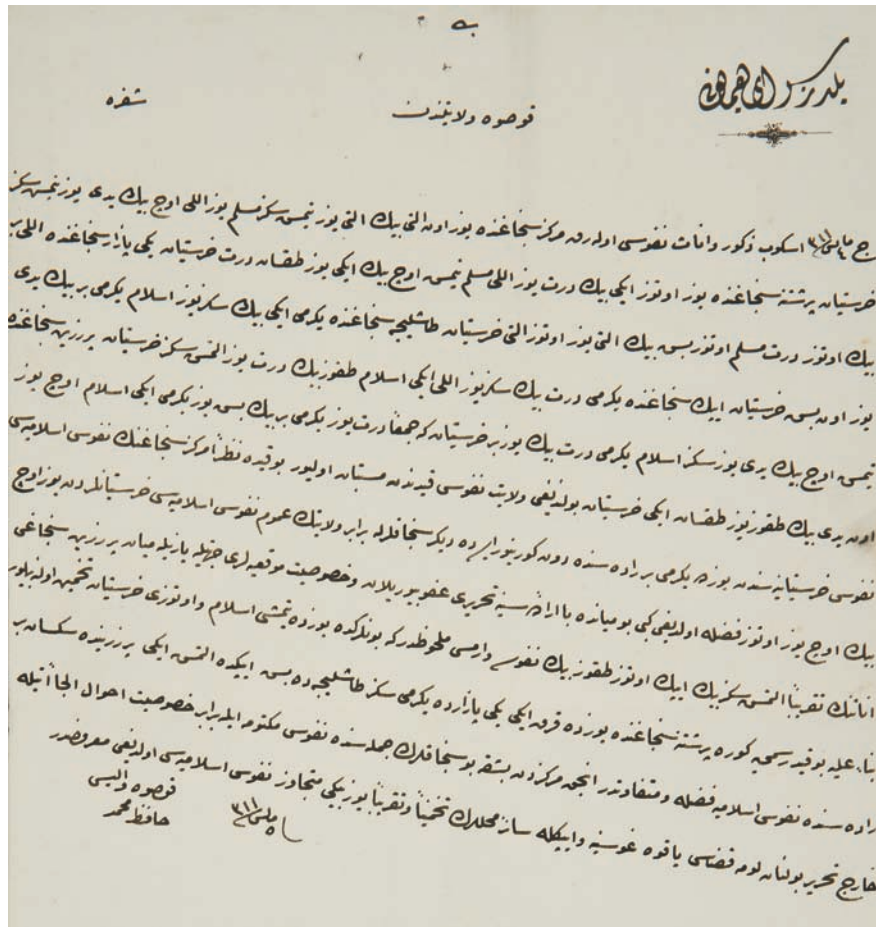 یلدز سرای همایونی
شفره
قوصوه ولایتندن
ج ٤ مایس ٣١١ اسکوب ذکور و اناث نفوسی اوله رق مرکز سنجاغنده یوز اون التی بیك التی یوز یتمش سکز مسلم یوز اللی اوچ بیك یدی یوز یتمش سکز
خرستیان پرشتنه سنجاغنده یوز اوتوز ایکی بیك درت یوز اللی مسلم یتمش اوچ بیك ایکی یوز طقسان درت خرستیان یکی بازار سنجاغنده اللی بر
بیك اوتوز درت مسلم اوتوز بش بیك التی یوز اوتوز التی خرستیان طاشلیجه سنجاغنده یکرمی ایکی بیك سکز یوز اسلام یکرمی بر بیك یدی
یوز اون بش خرستیان ایپك سنجاغنده یکرمی درت بیك سکز یوز اللی ایکی اسلام طقوز بیك درت یوز التمش سکز خرستیان پرزرین سنجاغنده
یتمش اوچ بیك یدی یوز سکز اسلام یکرمی درت بیك یوز بر خرستیان که جمعاً درت یوز یکرمی بر بیك بش یوز یکرمی ایکی اسلام اوچ یوز
اون یدی بیك طقوز یوز طقسان ایکی خرستیان بولندیغی ولایت نفوسی قیدندن مستبان اولیور بو قیده نظراً مرکز سنجاغنك نفوس اسلامیه سی
نفوس خرستیانیه سندن یوزده یکرمی بر راده سنده دون کورینور ایسه ده دیکر سنجاقلرله برابر ولایتك عموم نفوس اسلامیه سی خرستیانلردن یوز اوچ
بیك اوچ یوز اوتوز فضله اولدیغی کبی بو میانده با اراده سنیه تحریری عفو بیوریلان و خصوصیت موقعیه لری جهتیله یازیله میان پرزرین سنجاغی
اناثنك تقریباً التمش سکز بیك ایپك اوتوز طقوز بیك نفوسی وارمسی ملحوظدر که بونلرکده یوزده یتمشی اسلام و اوتوزی خرستیان تخمین اولنه بیلور
بناءً علیه بو قید رسمی یه کوره پرشتنه سنجاغنده یوزده قرق ایکی یکی بازارده یکرمی سکز طاشلیجه ده بش ایپکده التمش ایکی پرزرینده سکسان بر
راده سنده نفوس اسلامیه فضله و متفاوتدر انجق مرکزدن بشقه بو سنجاقلرك جمله سنده نفوس مکتومه ایله برابر خصوصیت احوال الجاآتیله
خارج تحریر بولنان لومه قضاسی یاقوه غوسنیه و ایپکله سائر محللرك تخمیناً و تقریباً یوز بیکی متجاوز نفوس اسلامیه سی اولدیغی معروضدر
٥ مایس ٣١١
قوصوه والیسی
حافظ محمد